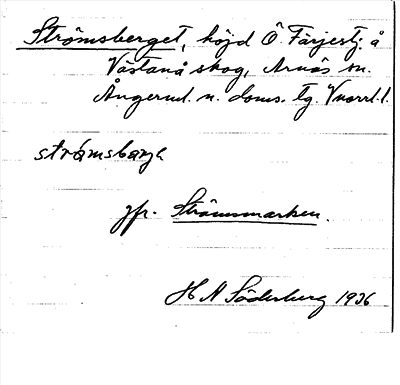 Strömsberget, höjd Ö Färjestj. å
Västanå skog, Arnäs sn.
Ångerml. n. doms. tg. Vnorrl. l.
strömsbarg
jfr. Strömsmarken.
H N Söderberg 1936